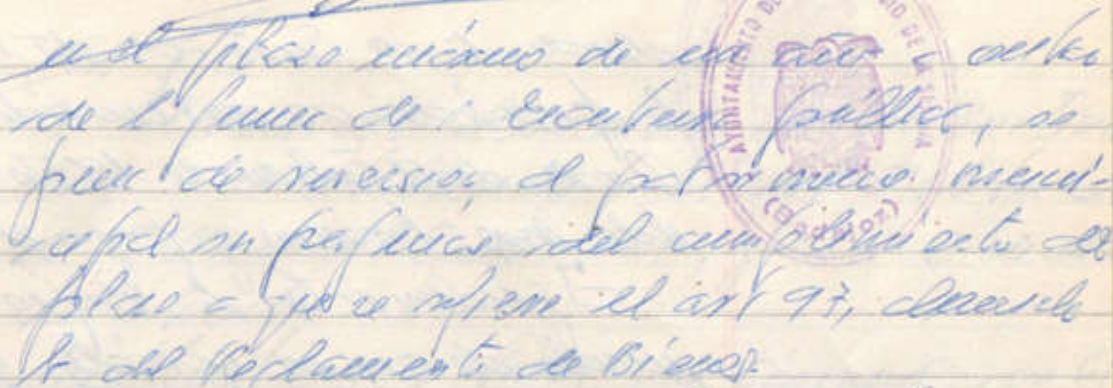 en el plazo máximo de un año a contar
de la firma de escritura pública, so
pena de reversión al patrimonio muni-
cipal sin perjuicio del cumplimiento del
plazo a que se refiere el art 97, 
del Reglamento de Bienes.
AYUNTAMIENTO DE
DE LA
(BADAJOZ)